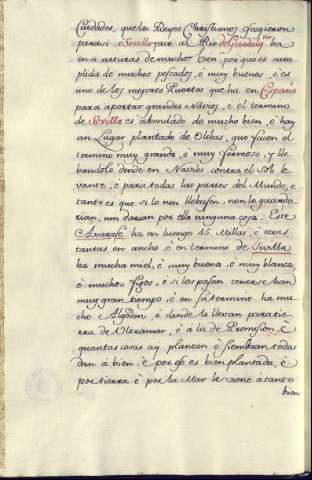 Ciudades, que los Reyes Christianos escogieron
para sí. è Sevilla jace al Rio de Guadalq.vir ha
en si naturas de mucho bien, por que es cum
plida de muchos pescados, è muy buenos, è es
uno de los mejores Puertos que ha en Espana
para aportar grandes Navios, è el termino
de Sevilla es abondado de mucho bien, è hay
un Lugar plantado de Olibas, que facen el
termino muy grande, è muy fermoso, y lle
bandolo dende en Navios contra el Sol le
vante, è para todas las partes del Mundo, è
tanto es que si lo non llebasen, non lo guarda
rian, nin darian por ello ninguna cosa. Este
Axarafe ha en luengo 45 Millas, è otras
tantas en ancho, è en termino de Sevilla
ha mucha miel, è muy buena, è muy blanca,
è muchos figos, è si los pasan tenerse han
muy gran tiempo, è en su termino ha mu
cho Algodon, è dende lo llevan para tie
rra de Ultramar, è á la de Promision, è
quantas cosas ay plantan è siembran todas
dan á bien. è por esso es bien plantada, è
por tierra è por la Mar le viene á tanto
bien